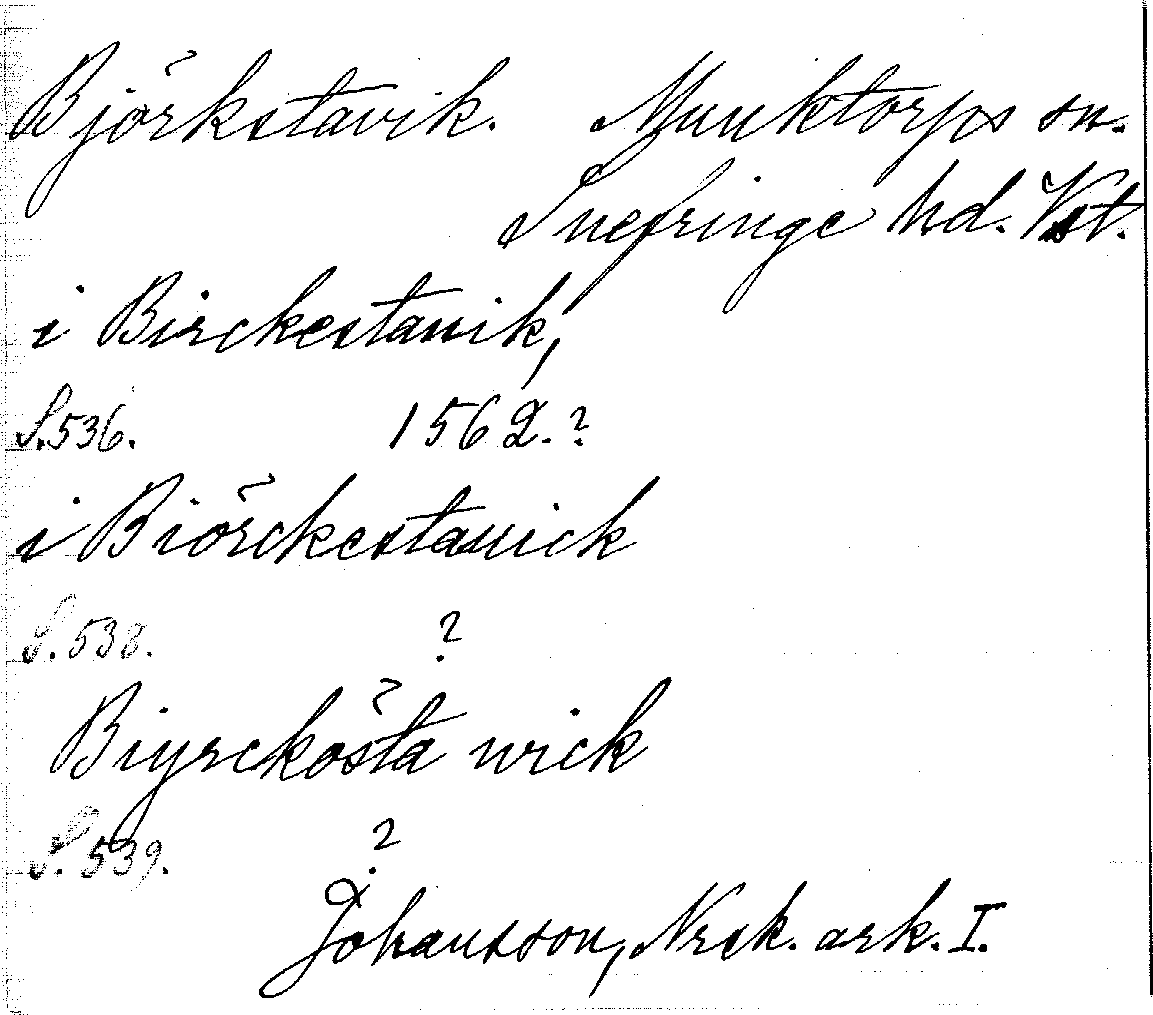 Björkstavik. Munktorps sn.
Snefringe hd. Vst.
i Birckestauik,
S. 536. 1562.?
i Biörckestauick
S. 538. ?
Biyrckösta wick
S. 539. ?
Johansson, Nrsk. ark. I.